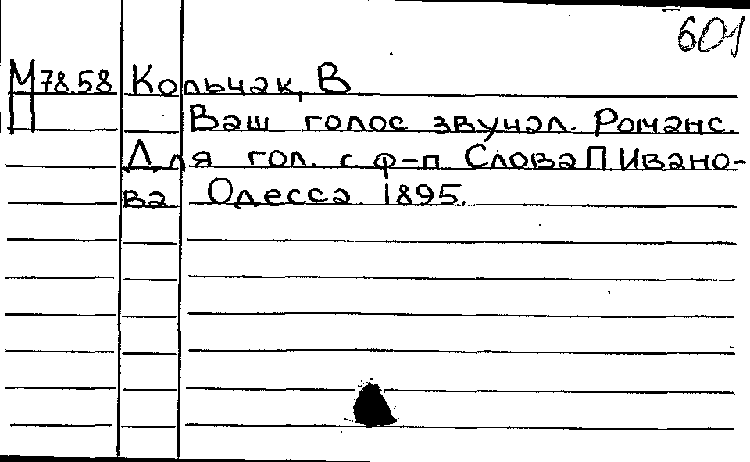 601
М 78.58 Кольчак, В
П Ваш голос звучал. Романс.
Для гол. с ф-п Слова П. Ивано-
ва Одесса. 1895.